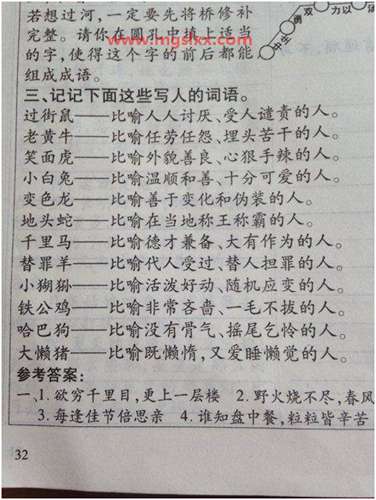 若想过河，一定要先将桥修补
完整。请你在圆孔中填上适当
www.mgslxx.com
的字，使得这个字的前后都能
组成成语。
双
力以
中生
三、记记下面这些写人的词语。
过街鼠——比喻人人讨厌、受人谴责的人。
老黄牛——比喻任劳任怨、埋头苦干的人。
笑面虎——比喻外貌善良、心狠手辣的人。
小白兔——比喻温顺和善、十分可爱的人。
变色龙——比喻善于变化和伪装的人。
地头蛇——比喻在当地称王称霸的人。
千里马——比喻德才兼备、大有作为的人。
替罪羊——比喻代人受过、替人担罪的人。
小猢狲——比喻活泼好动、随机应变的人。
铁公鸡——比喻非常吝啬、一毛不拔的人。
哈巴狗——比喻没有骨气、摇尾乞怜的人。
大懒猪——比喻既懒惰，又爱睡懒觉的人。
参考答案：
一、1. 欲穷千里目，更上一层楼 2. 野火烧不尽，春风
3. 每逢佳节倍思亲 4. 谁知盘中餐，粒粒皆辛苦
32